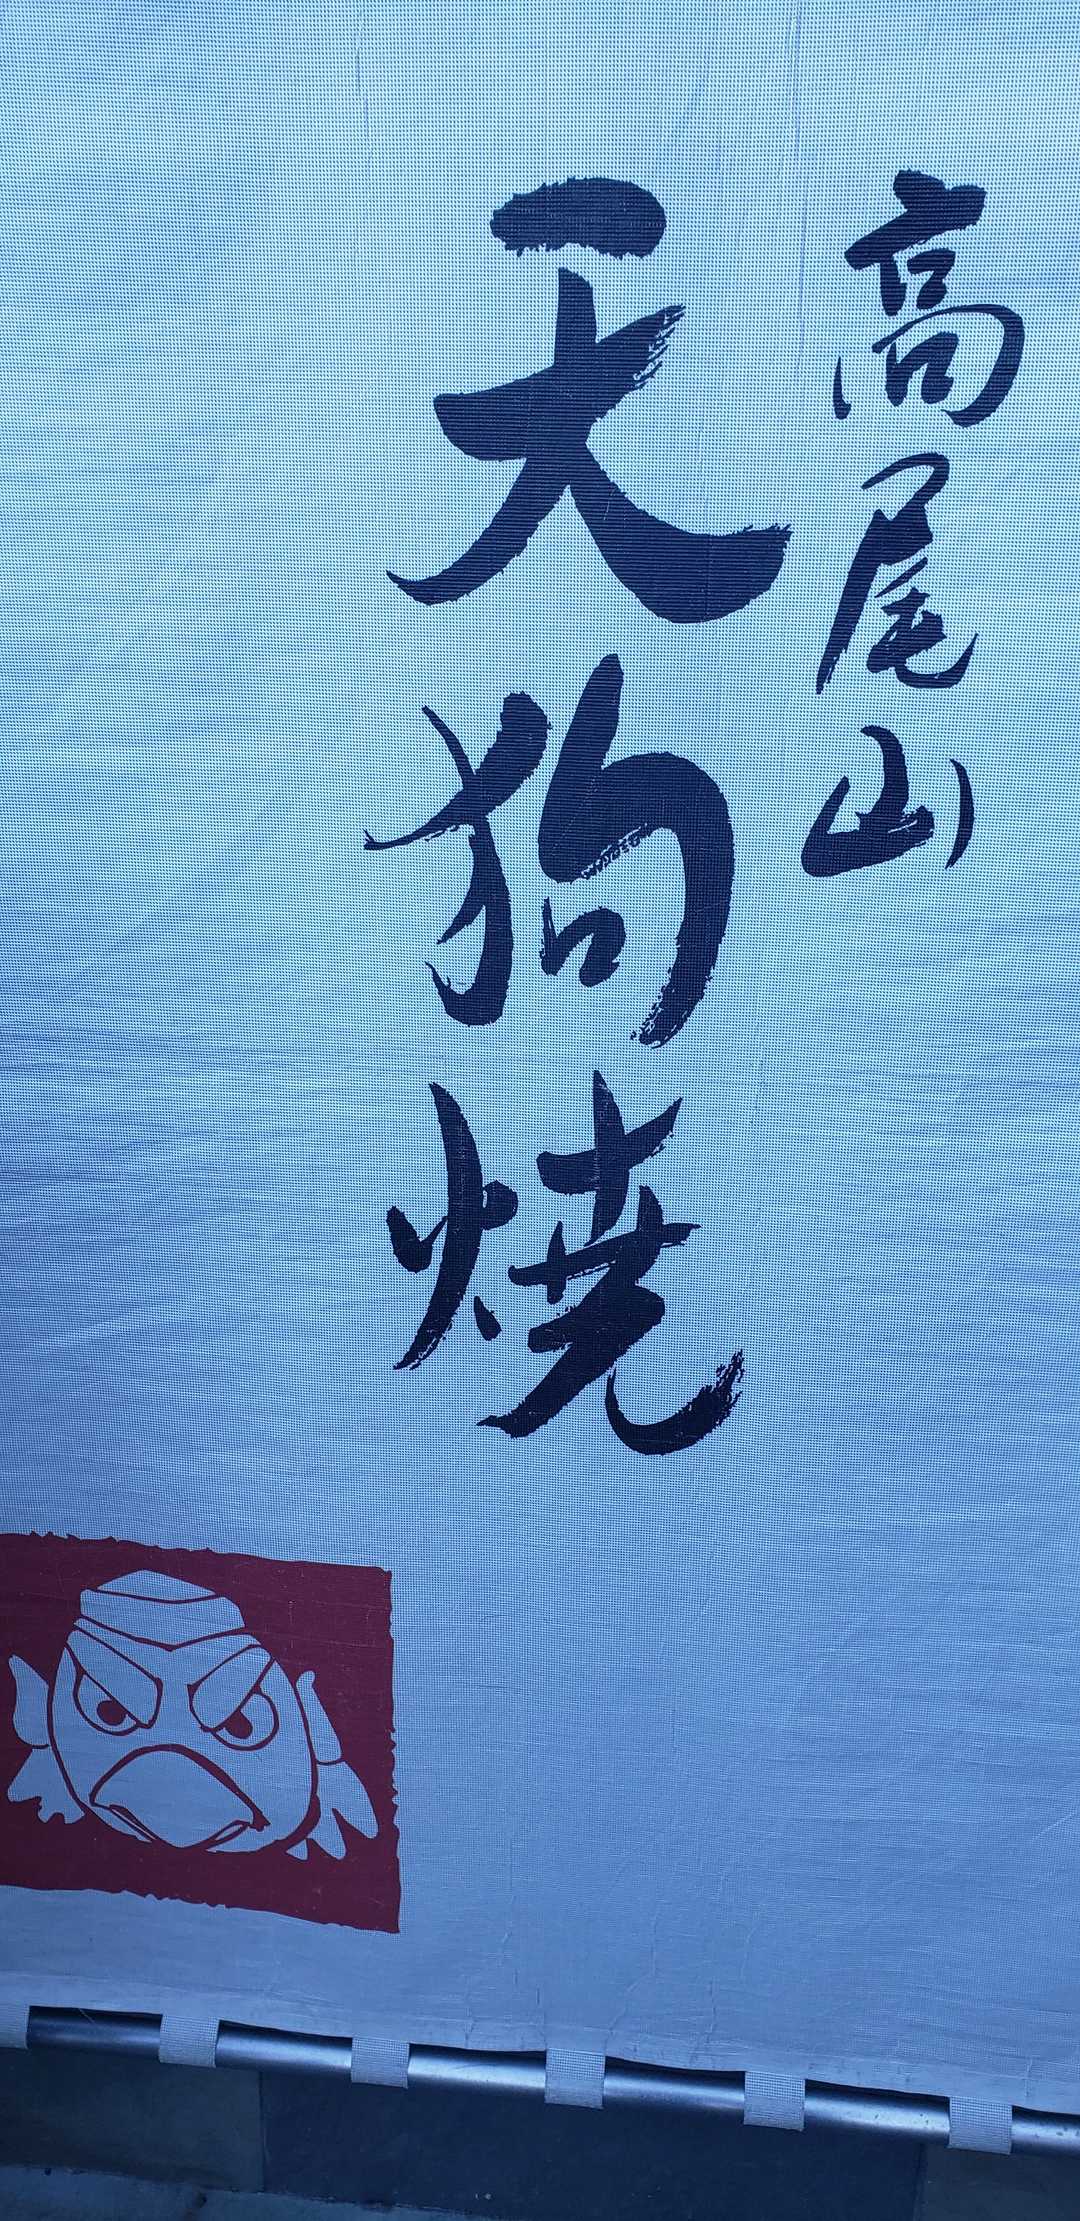 高尾山
天狗焼